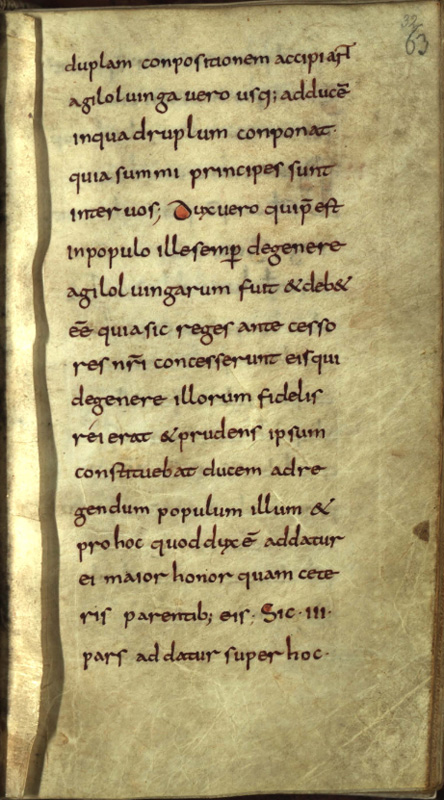 32
63
duplam conpositionem accipiant
agilolvinga vero usq; adducē
inquadruplum conponat·
quia summi principes sunt
inter vos; Dux vero qui p̄est
inpopulo ille semꝑ degenere
agilolvingarum fuit & deb&
eē quia sic reges ante cesso
res nr̄i concesserunt eis qui
degenere illorum fidelis
rei erat & prudens ipsum
constituebat ducem adre
gendum populum illum &
pro hoc quod dux ē addatur
ei maior honor quam cete
ris parentib; eis; Sic·III·
pars addatur super hoc·